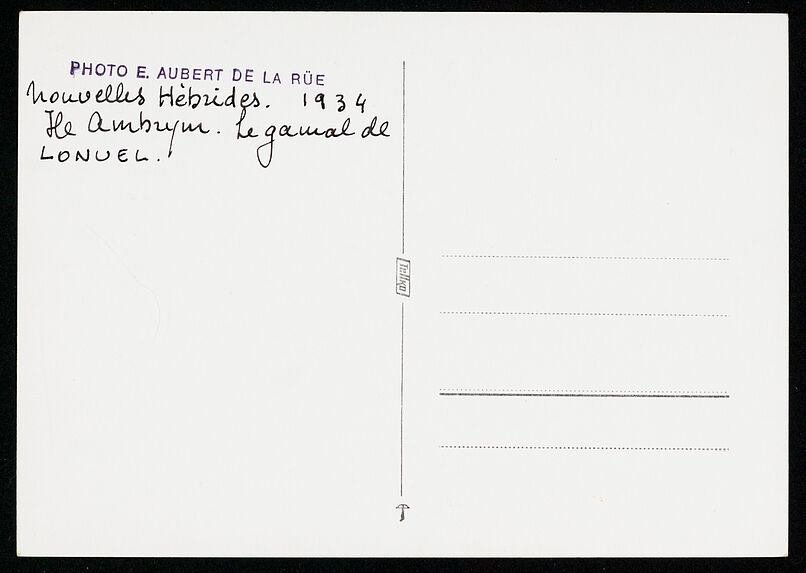 PHOTO E. AUBERT DE LA RÜE
Nouvelles Hébrides. 1934
Ile Ambrym. Le gamal de
LONUEL.
Tellko